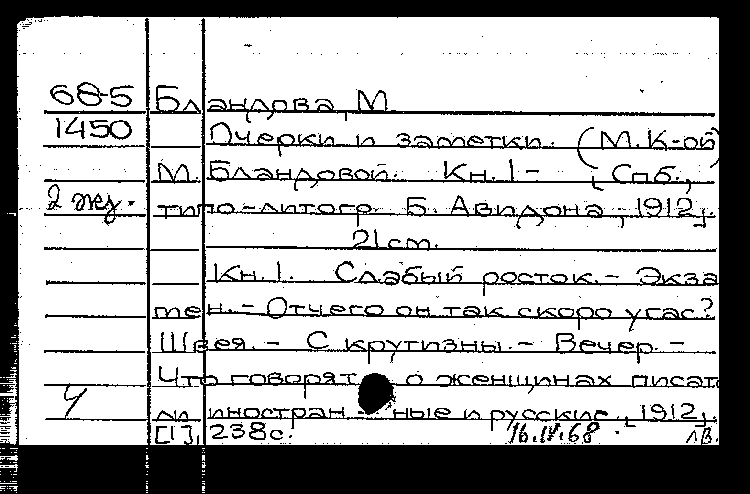 68-5 Бландова, М.
1450 Очерки и заметки. (М. К-ой)
М. Бландовой. Кн. 1 - [Спб.,
2 экз. типо-литогр. Б. Авидона, 1912].
21 cm.
Кн. 1. Слабый росток. - Экза
мен. - Отчего он так скоро угас?
Швея. - С крутизны. - Вечер. -
Что говорят о женщинах писат
ли иностран - ные и русские. [1912].
[1], 238 с. 16.IV.68